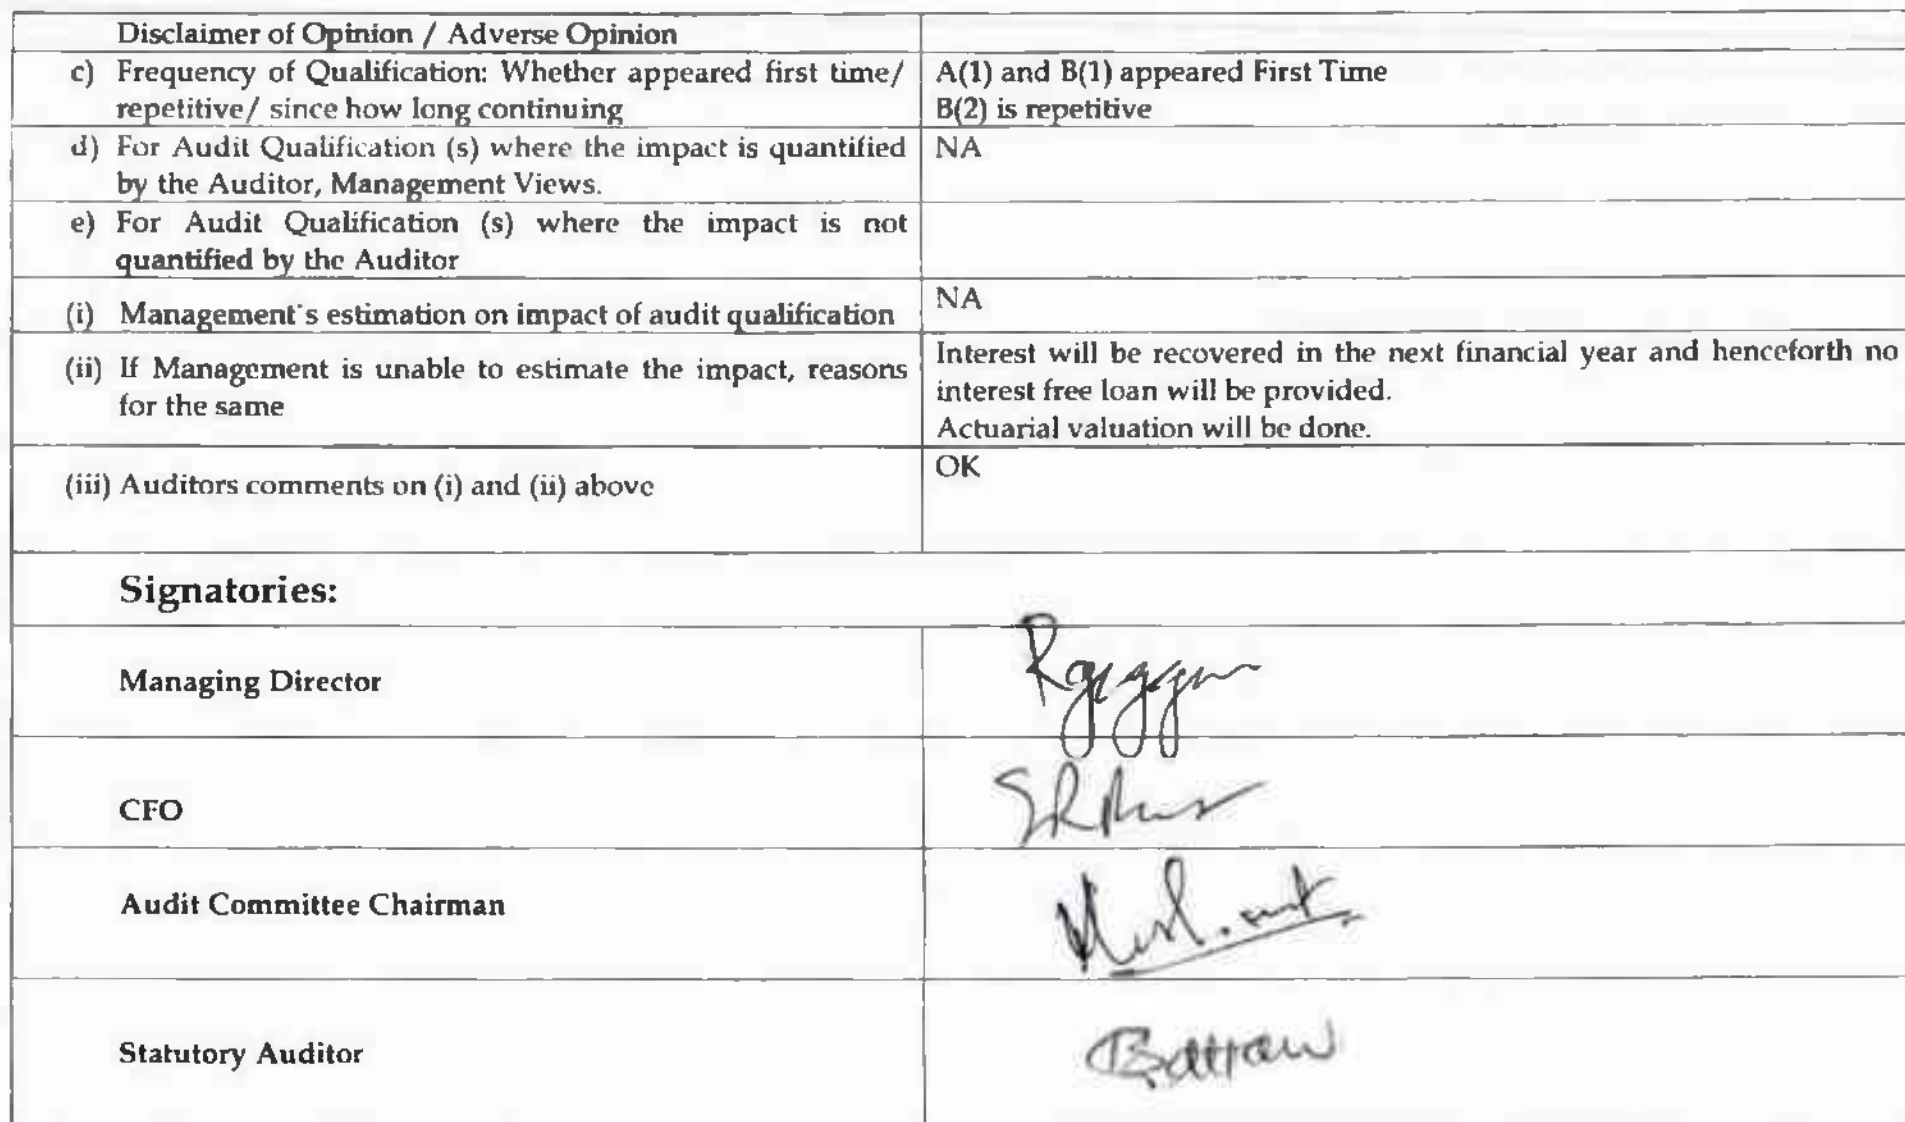 Disclaimer of Opinion / Adverse Opinion
c) Frequency of Qualification: Whether appeared first time/
repetitive/ since how long continuing
A(1) and B(1) appeared First Time
B(2) is repetitive
d) For Audit Qualification (s) where the impact is quantified
by the Auditor, Management Views.
NA
e) For Audit Qualification (s) where the impact is not
quantified by the Auditor
(i) Management's estimation on impact of audit qualification
NA
(ii) If Management is unable to estimate the impact, reasons
for the same
Interest will be recovered in the next financial year and henceforth no
interest free loan will be provided.
Actuarial valuation will be done.
(iii) Auditors comments on (i) and (ii) above
OK
Signatories:
Managing Director
CFO
Audit Committee Chairman
Statutory Auditor